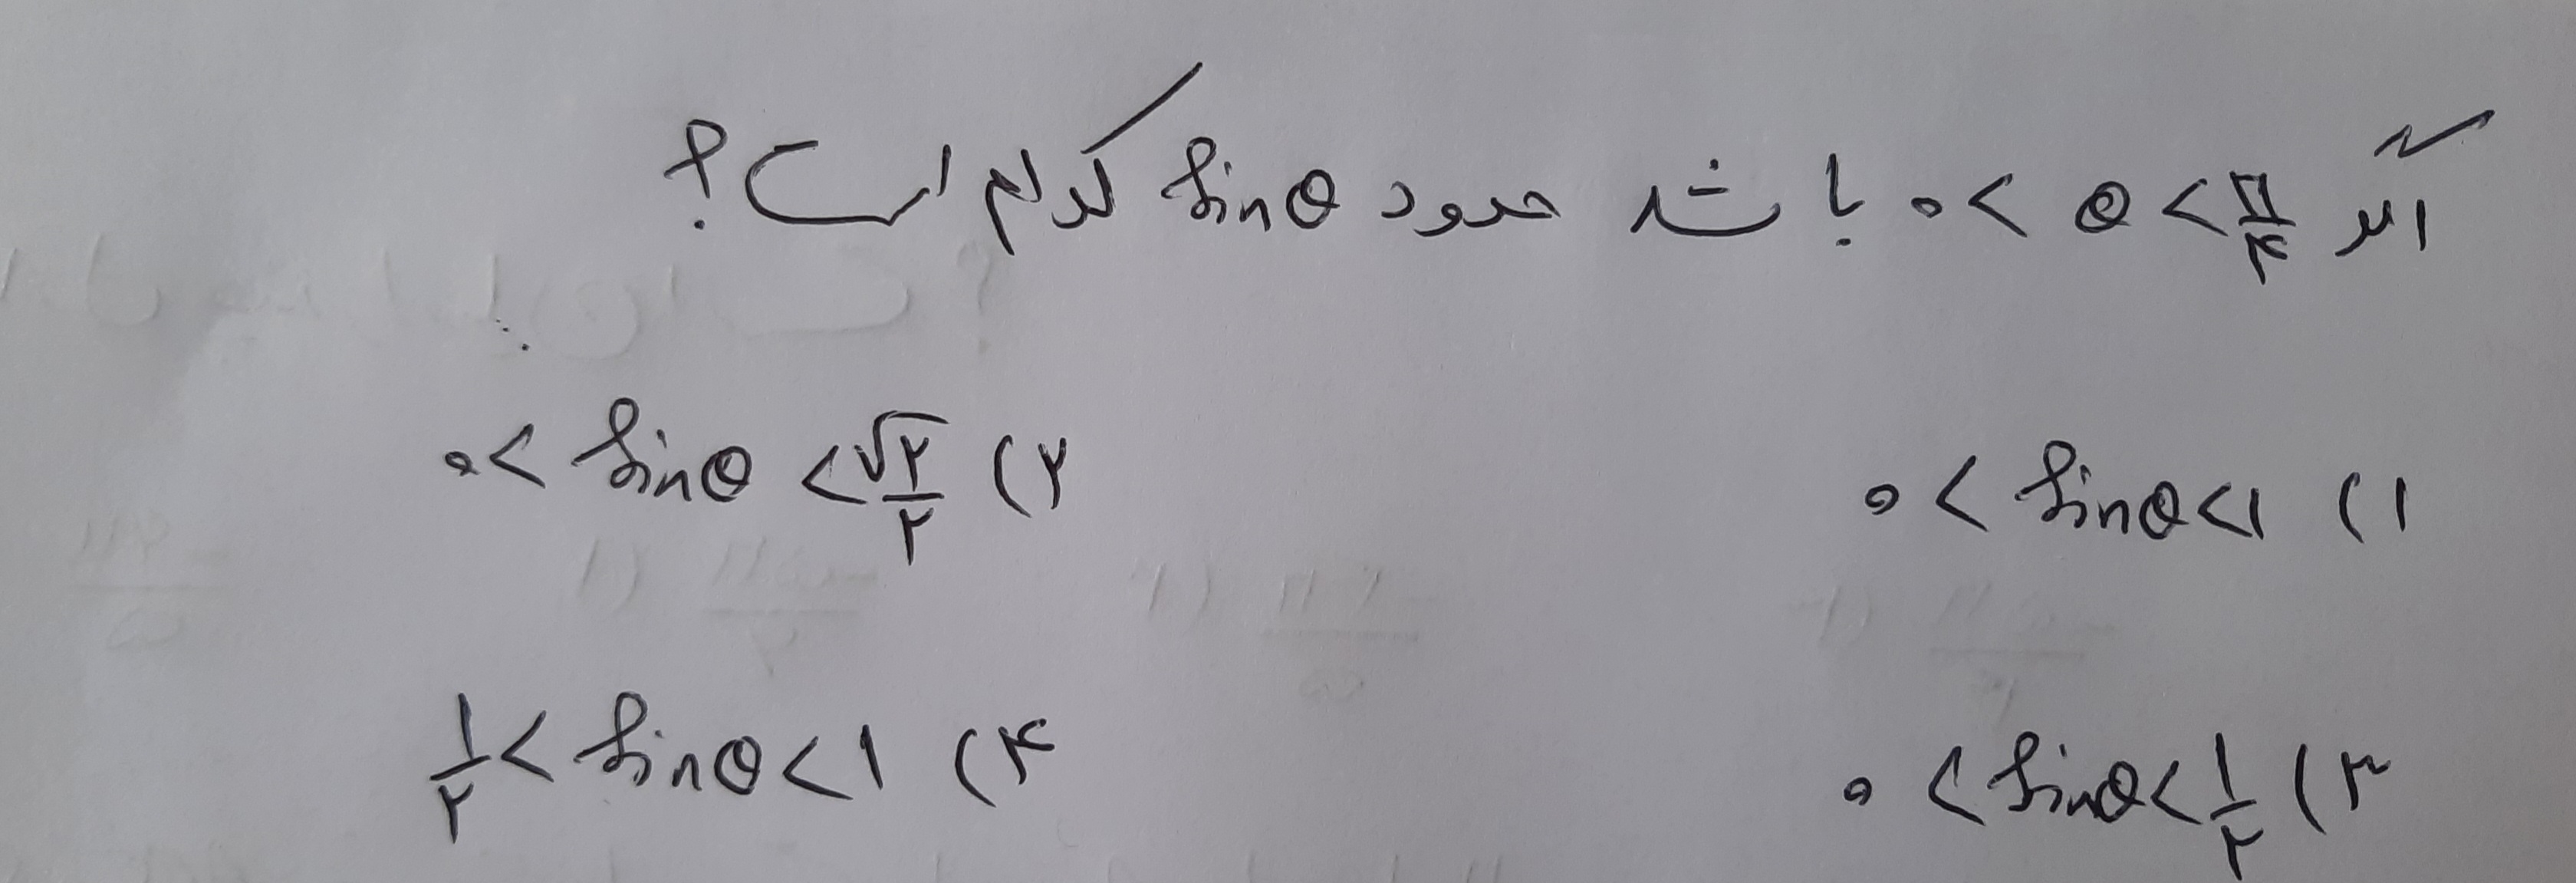 اگر ۰ < θ < π/۴ باشد حدود sinθ کدام است؟
۱) ۰ < sinθ < ۱
۲) ۰ < sinθ < √۲/۲
۳) ۰ < sinθ < ۱/۲
۴) ۱/۲ < sinθ < ۱